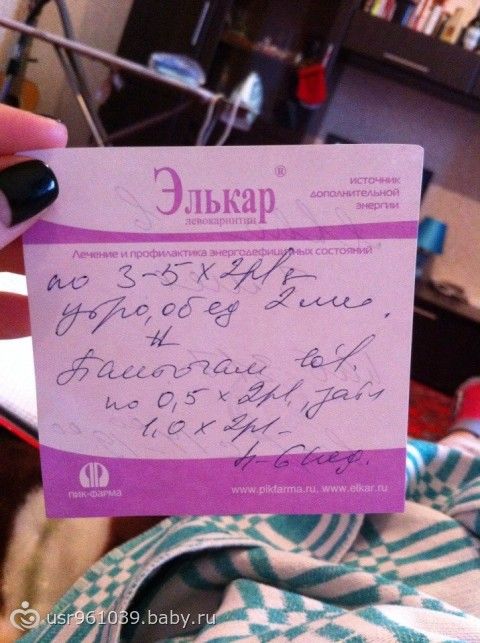 Элькар®
левокарнитин
источник
дополнительной
энергии
Лечение и профилактика энергодефицитных состояний
по 3-5 х 2р/
утро, обед 2
#
Пантогам 10%
по 0,5 х 2р/
1,0 х 2р/
4-6 нед.
ПИК-ФАРМА
www.pikfarma.ru, www.elkar.ru
usr961039.baby.ru